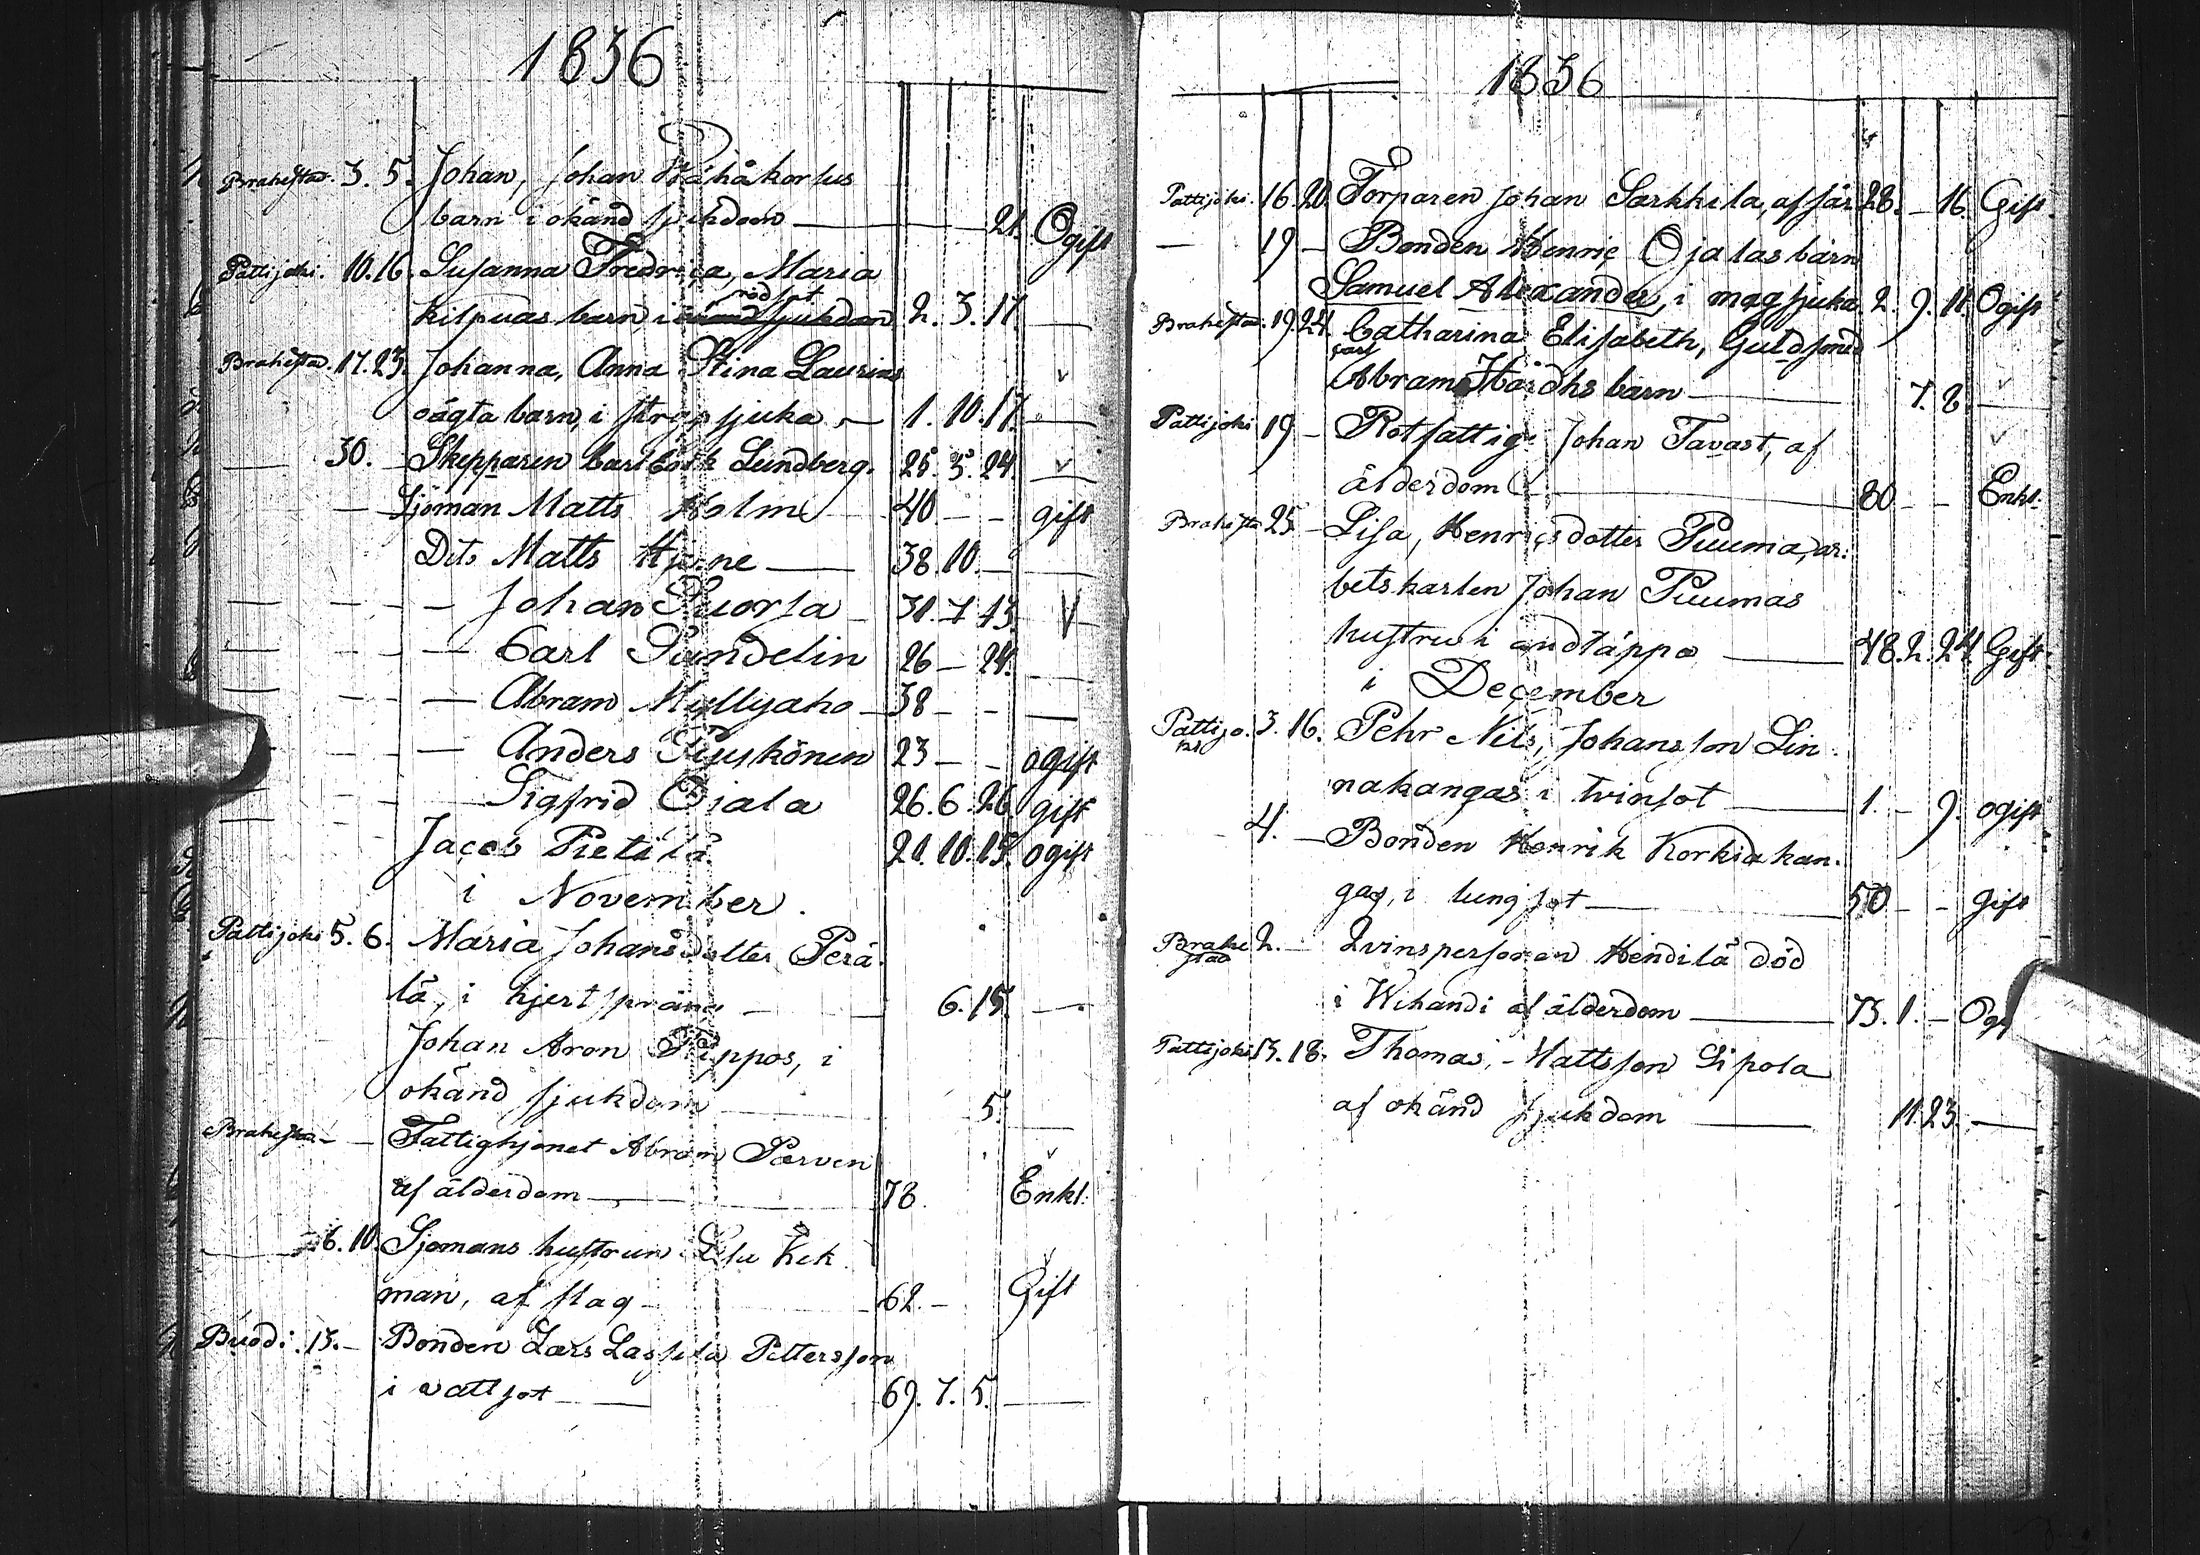 1836
Brahestad. 3. 5. Johan, Johan Råhåkorlus
barn i okänd sjukdom 21. Ogift
Pattijoki. 10. 16. Susanna Fredrica, Maria
rödsot
Kilpuas barn, i okänd sjukdom 2. 3. 11. —
Brahestad. 17. 23. Johanna, Anna Stina Laurins
oägta barn, i strypsjuka — 1. 10. 17. —
— 30. Skepparen Carl Lundberg. 25. 5. 24.
— Sjöman Matts Holm 40 — — gift
Dito Matts 38. 10. —
— Johan Suorsa 31. 7 13.
— Carl Sundelin 26 — 24.
— Abram Myllyaho 38 — —
— Anders 23 — — ogift
— Sigfrid Ojala 26. 6. 26 gift
Jacob Pietilä 21. 10. 15. ogift
i November.
Pattijoki 5. 6. Maria Johansdotter Perä-
lä, i hjertspräng — 6. 15. —
Johan Aron Pippos, i
okänd sjukdom — 5.
Brahestad — — Fattighjonet Abram Parven
af ålderdom — 78. Enkl.
— 6. 10. Sjömans hustrun Lisa Kek
man, af slag — 62. — Gift
Buodi. 13. — Bonden Lars Lassila Pettersson
i vattsot — 69. 7. 5. —
1836
Pattijoki. 16. 20. Torparen Johan Sarkkila, af sår 28. — 16. Gift.
— 19 — Bonden Henric Ojalas barn
Samuel Alexander, i magsjuka 2. 9. 11. Ogift
Brahestad. 19. 24. Catharina Elisabeth, Guldsmed
Abram barn — 7. 8. —
Pattijoki 19 — Rotfattige Johan Tavast, af
ålderdom — 80 — — Enkl.
Brahesta 25 — Lisa, Henricsdotter Puuma, ar-
betskarlen Johan Puumas
hustru i andtäppa — 48. 2. 24. Gift.
i December
Pattijo-
ki 3. 16. Pehr Nils, Johansson Lin-
nakangas i tvinsot — 1. — 9. ogift
4. — Bonden Henrik Korkiakan-
gas, i lungsot — 50 — — gift
Brahe
stad 2. — Qvinspersonen Hendilä död
i Wihandi af ålderdom — 73. 1. — Og
Pattijoki 13. 18. Thomas, Mattsson Sipola
af okänd sjukdom — 11. 23. —